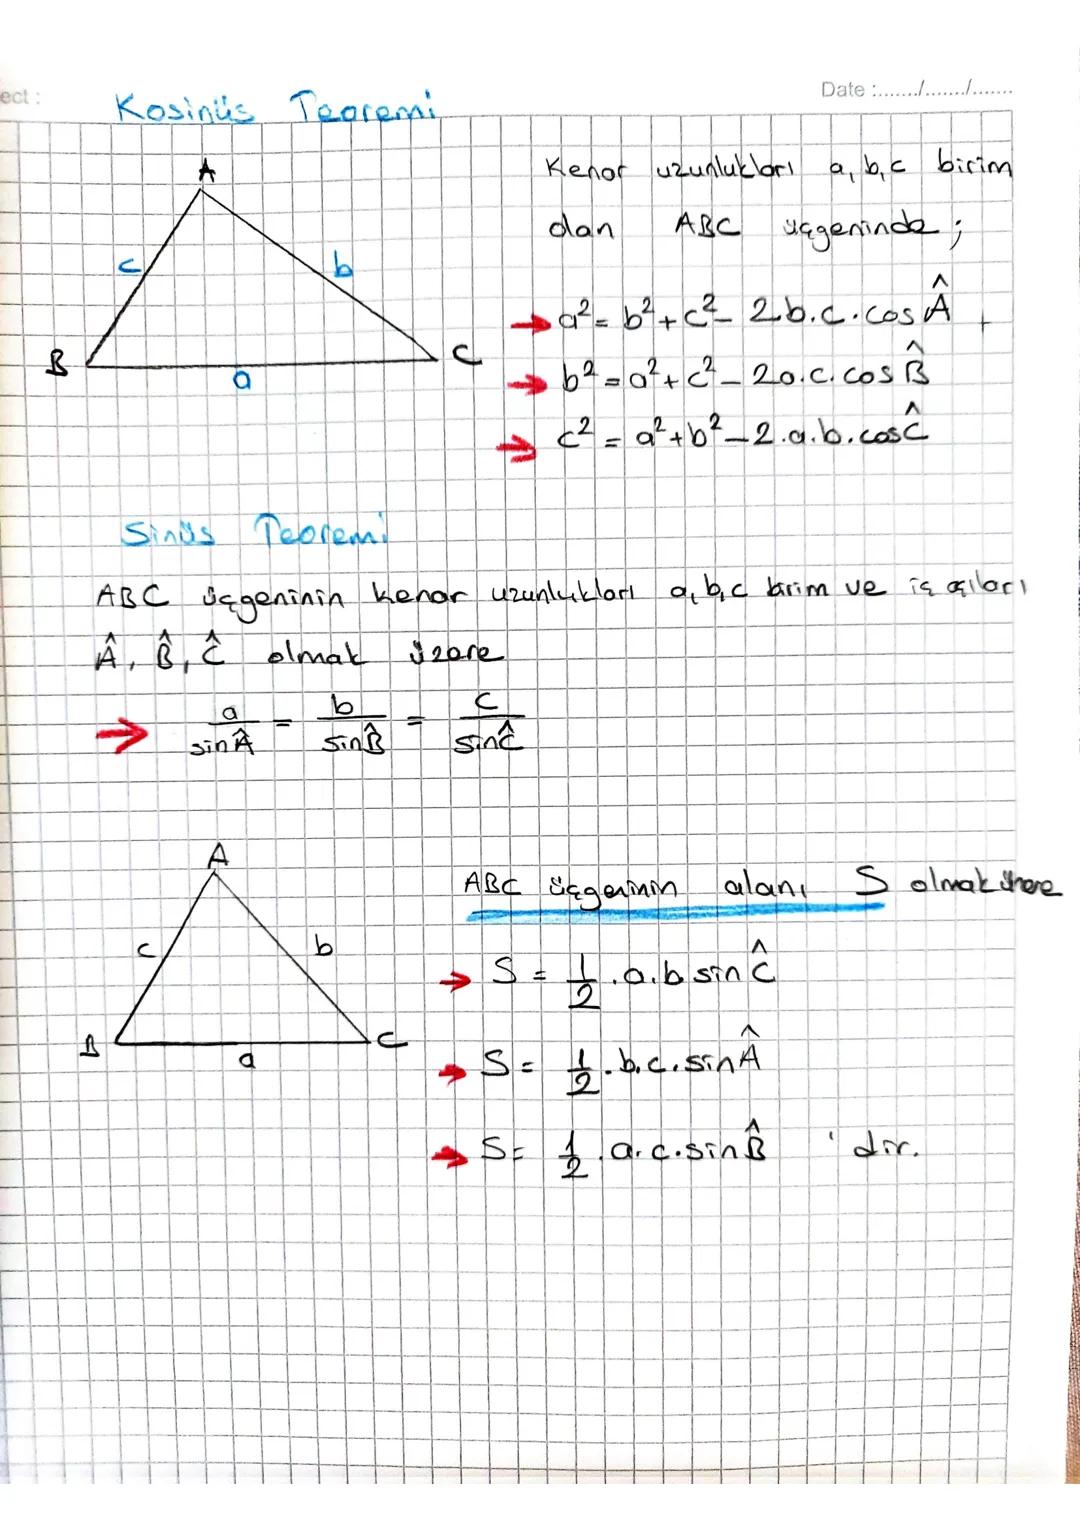 ect :
Date :......./......./.......
Kosinüs Teoremi
A
c
b
B
a
C
Kenar uzunlukları a, b, c birim
olan ABC üçgeninde ;
→ a² = b² + c² - 2b.c.cos Â
→ b² = a² + c² - 2a.c.cos B̂
→ c² = a² + b² - 2.a.b.cos Ĉ
Sinüs Teoremi
ABC üçgeninin kenar uzunlukları a, b, c birim ve iç açıları
Â, B̂, Ĉ olmak üzere
→ a/sin Â = b/sin B̂ = c/sin Ĉ
A
c
b
B
a
C
ABC üçgeninin alanı S olmak üzere
→ S = 1/2 . a.b sin Ĉ
→ S = 1/2 . b.c.sin Â
→ S = 1/2 . a.c.sin B̂ 'dir.